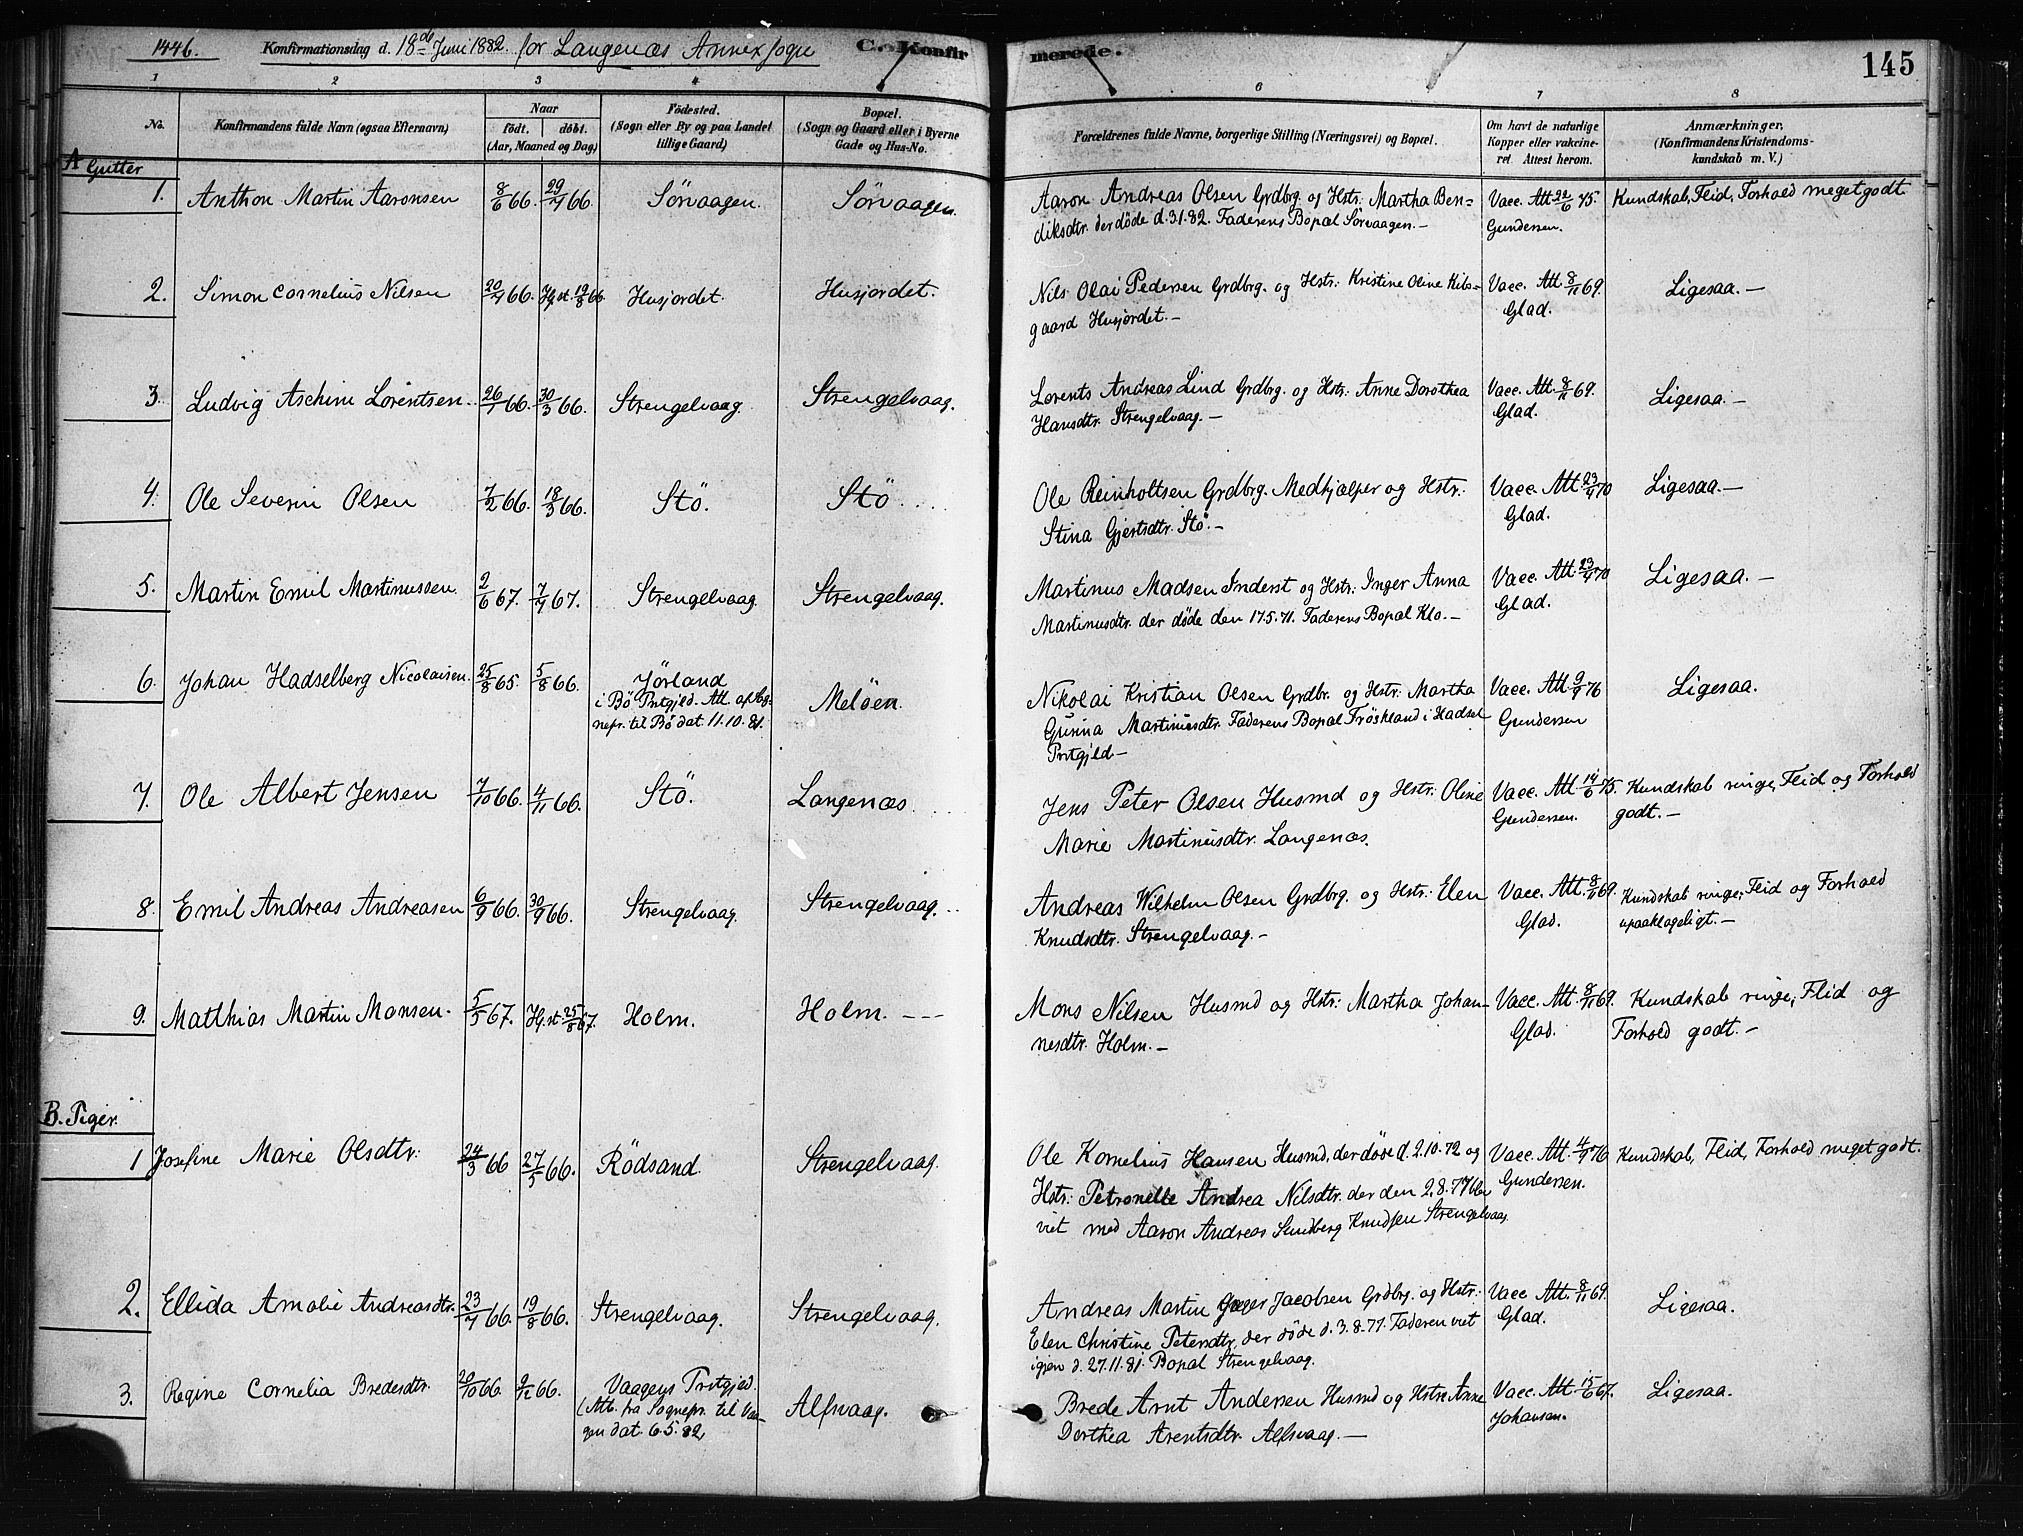 1446. Konfirmationsdag d. 18de Juni 1882. for Langenæs Annexsogn C. Konfirmerede. 145
1 2 3 4 6 7 8
No. Konfirmandens fulde Navn (ogsaa Efternavn) Naar født. døbt. (Aar, Maaned og Dag) Fødested. (Sogn eller By og paa Landet tillige Gaard) Bopæl. (Sogn og Gaard eller i Byerne Gade og Hus-No. Forældrenes fulde Navne, borgerlige Stilling (Næringsvei) og Bopæl. Om havt de naturlige Kopper eller vakcineret. Attest herom. Anmærkninger, (Konfirmandens Kristendomskundskab m. V.)
A Gutter
1. Anthon Martin Aaronsen 8/6 66. 29/7 66. Sørvaagen. Sørvaagen. Aaron Andreas Olsen Grdbrg. og Hstr. Martha Ben=
diksdtr. der døde d. 3.1.82. Faderens Bopæl Sørvaagen.— Vacc. Att. 22/6 75. Gundersen. Kundskab, Flid, Forhold meget godt
2. Simon Cornelius Nilsen 20/7 66. Hjst. 19/8 66. Husjordet. Husjordet. Nils Olai Pedersen Grdbrg. og Hstr. Kristine Oline Kils=
gaard Husjordet.— Vacc. Att. 8/11 69. Glad. Ligesaa.—
3. Ludvig Aschim Lorentsen. 26/1 66. 30/3 66. Strengelvaag. Strengelvaag. Lorents Andreas Lind Grdbrg. og Hstr. Anne Dorothea
Hansdtr. Strengelvaag.— Vacc. Att. 8/11 69. Glad. Ligesaa.—
4. Ole Severin Olsen 7/2 66. 18/3 66. Stö. Stö. Ole Reinholtsen Grdbrg. Medhjælper og Hstr.
Stina Gjertsdtr. Stö.— Vacc. Att. 23/9 70 Glad. Ligesaa.—
5. Martin Emil Martinussen. 2/6 67. 7/7 67. Strengelvaag. Strengelvaag. Martinus Madsen Inderst og Hstr. Inger Anna
Martinusdtr. der døde den 17.5.71. Faderens Bopæl Klo.— Vacc. Att. 23/9 70 Glad. Ligesaa.—
6. Johan Hadselberg Nicolaisen. 25/8 65. 5/8 66. Jørland
i Bø Prstgjeld. Att. af Sog=
nepr. til Bø dat 11.10.81. Meløen. Nikolai Kristian Olsen Grdbr. og Hstr. Martha
Gurina Martinusdtr. Faderens Bopæl Fröskland i Hadsel
Prstgjld— Vacc. Att. 9/9 76 Gundersen Ligesaa.
7. Ole Albert Jensen 7/10 66. 4/11 66. Stö. Langenæs. Jens Peter Olsen Husmd og Hstr. Oline
Marie Martinusdtr. Langenæs. Vacc. Att. 14/6 75. Gundersen. Kundskab ringe, Flid og Forhold
godt.—
8. Emil Andreas Andreasen 6/9 66. 30/9 66. Strengelvaag. Strengelvaag. Andreas Wilhelm Olsen Grdbrg. og Hstr. Elen
Knudsdtr. Strengelvaag.— Vacc. Att. 8/11 69. Glad. Kundskab ringe, Flid og Forhold
upaaklageligt.—
9. Matthias Martin Monsen. 5/5 67. Hjst. 25/8 67. Holm. Holm. Mons Nilsen Husmd og Hstr. Martha Johan=
nesdtr. Holm.— Vacc. Att. 8/11 69. Glad. Kundskab ringe, Flid og
Forhold godt.—
B. Piger.
1 Josefine Marie Olsdtr. 24/3 66 27/5 66. Rödsand. Strengelvaag. Ole Kornelius Hansen Husmd, der døde d. 2.10.72 og
Hstr. Petronelle Andrea Nilsdtr. der den 2.8.77 blev
viet med Aaron Andreas Sundberg Knudsen Strengelvaag. Vacc. Att. 4/9 76 Gundersen. Kundskab, Flid, Forhold meget godt.
2. Ellida Amalie Andreasdtr. 23/7 66. 19/8 66. Strengelvaag. Strengelvaag. Andreas Martin Jæger Jacobsen Grdbrg. og Hstr.
Elen Christine Petersdtr. der døde d. 3.8.77. Faderen viet
igjen d. 27.11.81. Bopæl Strengelvaag. Vacc Att. 8/11 69. Glad. Ligesaa.
3. Regine Cornelia Bredesdtr. 20/10 66. 9/12 66. Vaagens Prstgjed.
(Att. fra Sognepr. til Vaa=
gen dat. 6.5.82, Alfsvaag. Brede Arnt Andersen Husmd og Hstr. Anne
Dorthea Arentsdtr. Alfsvaag.— Vacc. Att. 15/6 67. Johansen. Ligesaa.